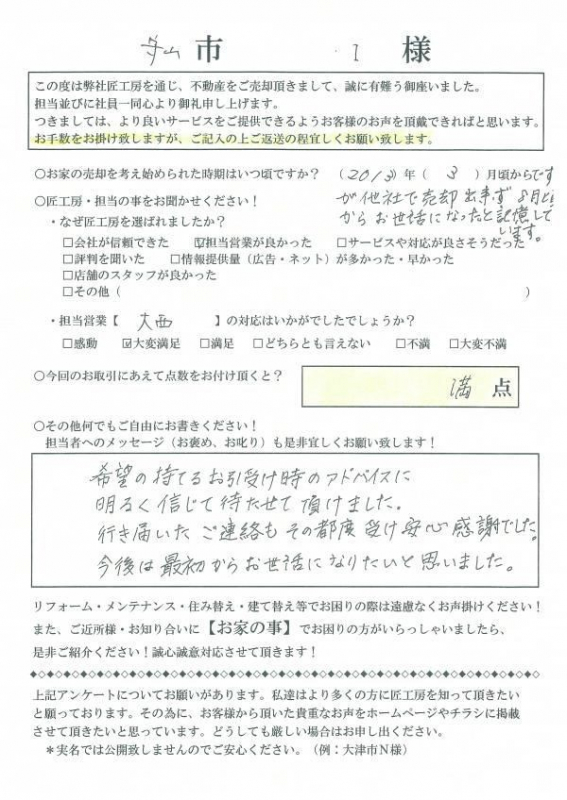 守山市 I 様
この度は弊社匠工房を通じ、不動産をご売却頂きまして、誠に有難う御座いました。
担当並びに社員一同心より御礼申し上げます。
つきましては、より良いサービスをご提供できるようお客様のお声を頂戴できればと思います。
お手数をお掛け致しますが、ご記入の上ご返送の程宜しくお願い致します。
○お家の売却を考え始められた時期はいつ頃ですか？ （2013）年（3）月頃からですが他社で売却出来ず8月頃からお世話になったと記憶しています。
○匠工房・担当の事をお聞かせください！
・なぜ匠工房を選ばれましたか？
□会社が信頼できた ☑担当営業が良かった □サービスや対応が良さそうだった
□評判を聞いた □情報提供量（広告・ネット）が多かった・早かった
□店舗のスタッフが良かった
□その他（ ）
・担当営業【 大西 】の対応はいかがでしたでしょうか？
□感動 ☑大変満足 □満足 □どちらとも言えない □不満 □大変不満
○今回のお取引にあえて点数をお付け頂くと？ 満 点
○その他何でもご自由にお書きください！
担当者へのメッセージ（お褒め、お叱り）も是非宜しくお願い致します！
希望の持てるお引受け時のアドバイスに
明るく信じて待たせて頂けました。
行き届いたご連絡もその都度受け安心感謝でした。
今後は最初からお世話になりたいと思いました。
リフォーム・メンテナンス・住み替え・建て替え等でお困りの際は遠慮なくお声掛けください！
また、ご近所様・お知り合いに【お家の事】でお困りの方がいらっしゃいましたら、
是非ご紹介ください！誠心誠意対応させて頂きます！
上記アンケートについてお願いがあります。私達はより多くの方に匠工房を知って頂きたい
と願っております。その為に、お客様から頂いた貴重なお声をホームページやチラシに掲載
させて頂きたいと思っています。どうしても厳しい場合はお申し出ください。
＊実名では公開致しませんのでご安心ください。（例：大津市Ｎ様）